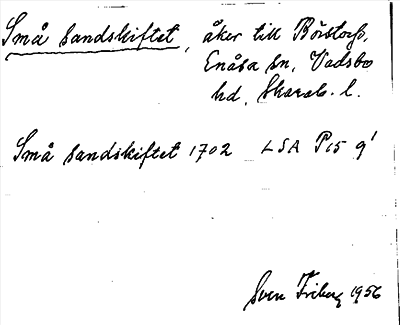 Små Sandskiftet, åker till Börstorp,
Enåsa sn, Vadsbo
hd, Skarab. l.
Små Sandskiftet 1702 LSA P15 9¹
Sven Friberg 1956